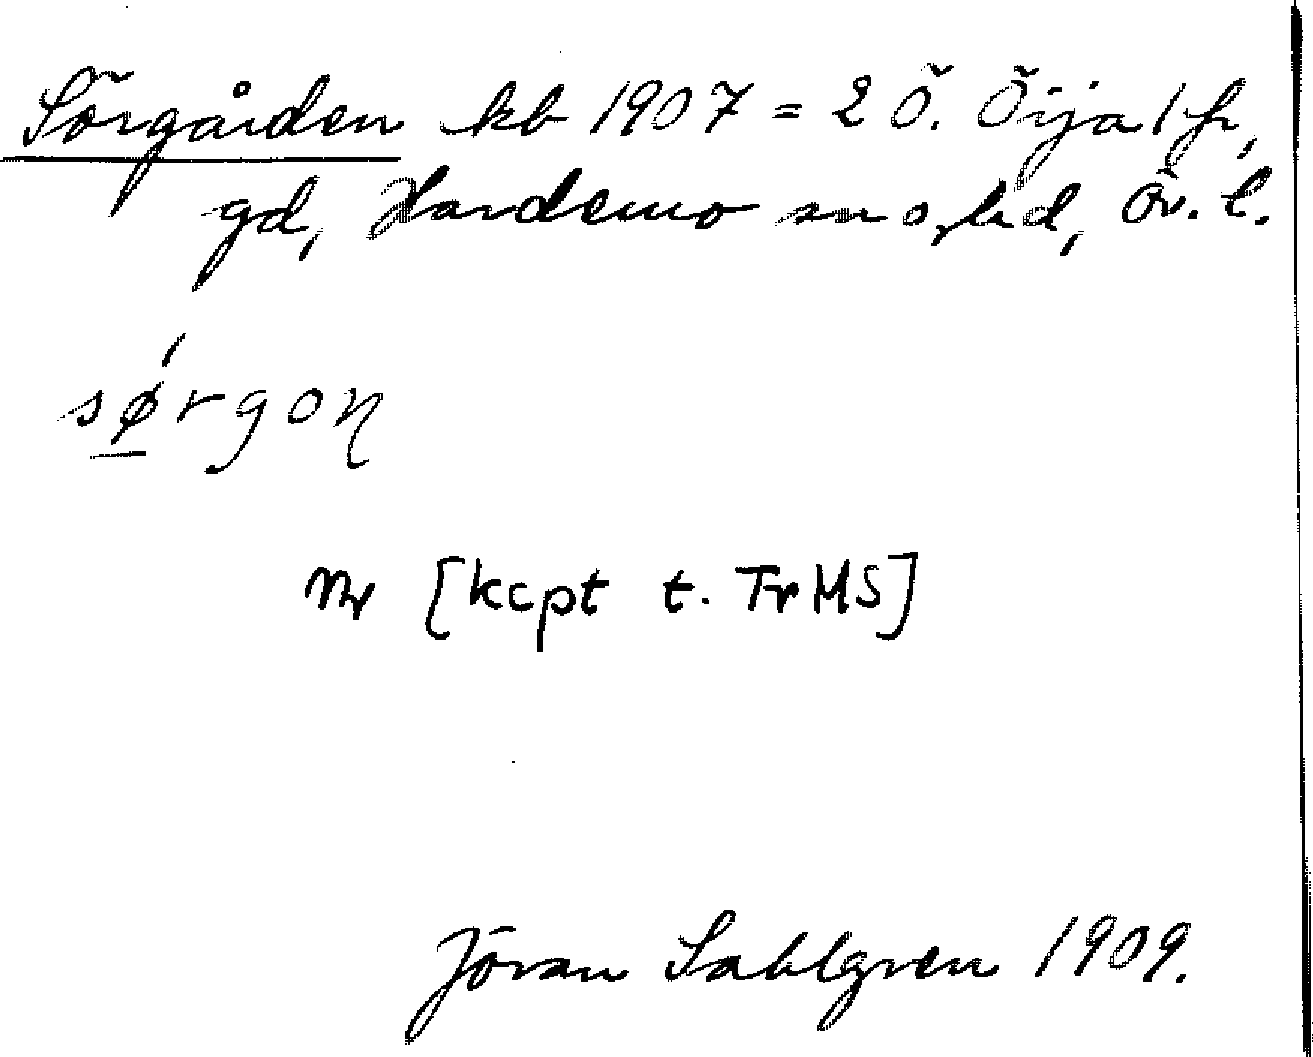 Sörgården kb 1907 = 2 Ö. Öija 1 fr,
gd, Hardemo sn o, hd, Ör. l.
sørgoɳ
[kcpt t. Tr MS]
Jöran Sahlgren 1909.